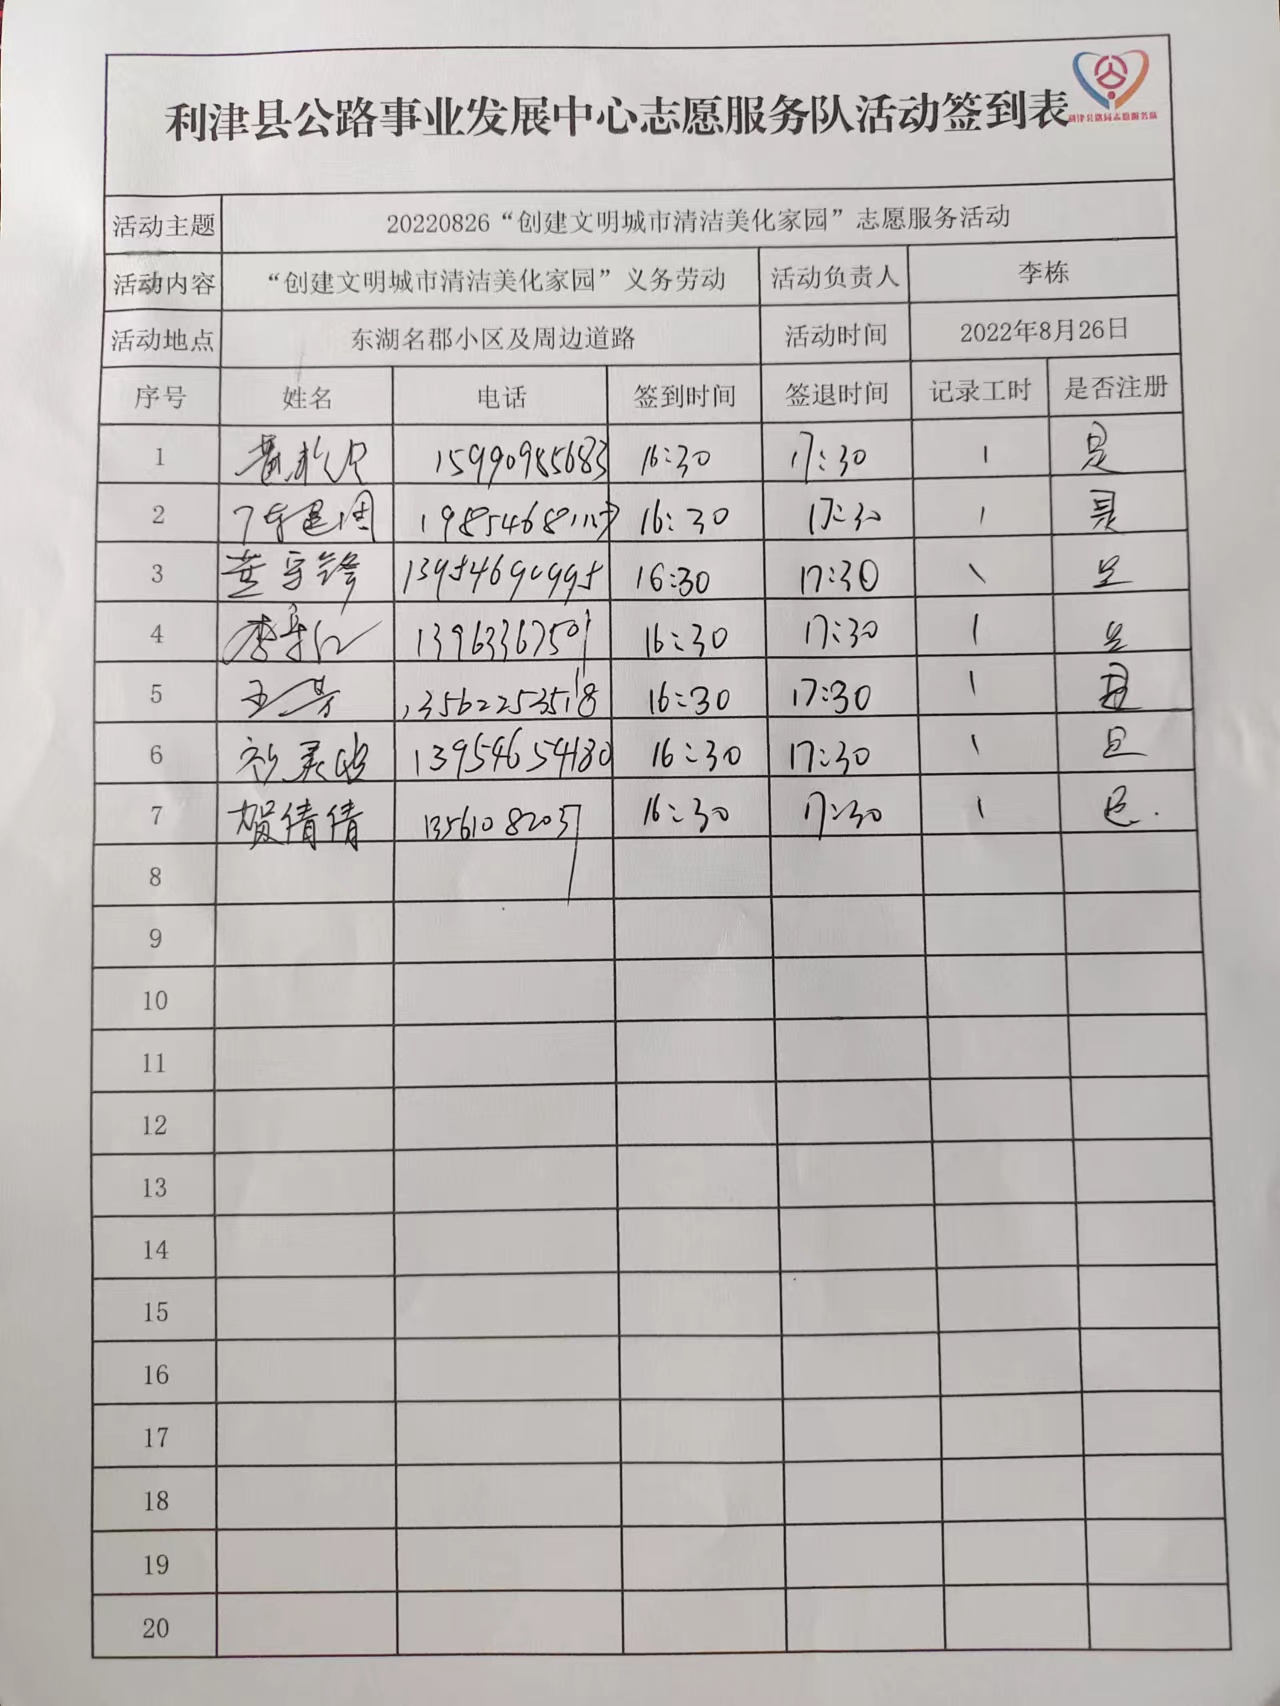 利津县公路事业发展中心志愿服务队活动签到表
利津公路局志愿服务队
活动主题 20220826“创建文明城市清洁美化家园”志愿服务活动
活动内容 “创建文明城市清洁美化家园”义务劳动 活动负责人 李栋
活动地点 东湖名郡小区及周边道路 活动时间 2022年8月26日
序号 姓名 电话 签到时间 签退时间 记录工时 是否注册
1 15990985683 16:30 17:30 1 是
2 16:30 17:30 1 是
3 16:30 17:30 1 是
4 13963367501 16:30 17:30 1 是
5 王芳 13562253518 16:30 17:30 1 是
6 13954654180 16:30 17:30 1 是
7 贺倩倩 13561082037 16:30 17:30 1 是
8
9
10
11
12
13
14
15
16
17
18
19
20